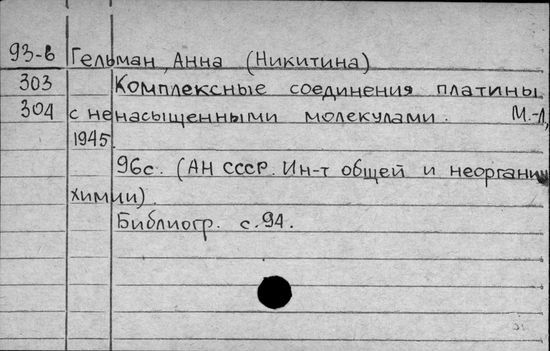 93-в Гельман, Анна (Никитина)
303 Комплексные соединения платины
304 с ненасыщенными молекулами. М.-Л,
1945.
96с. (АН СССР. Ин-т общей и неорганич
химии).
Библиогр. с.94.